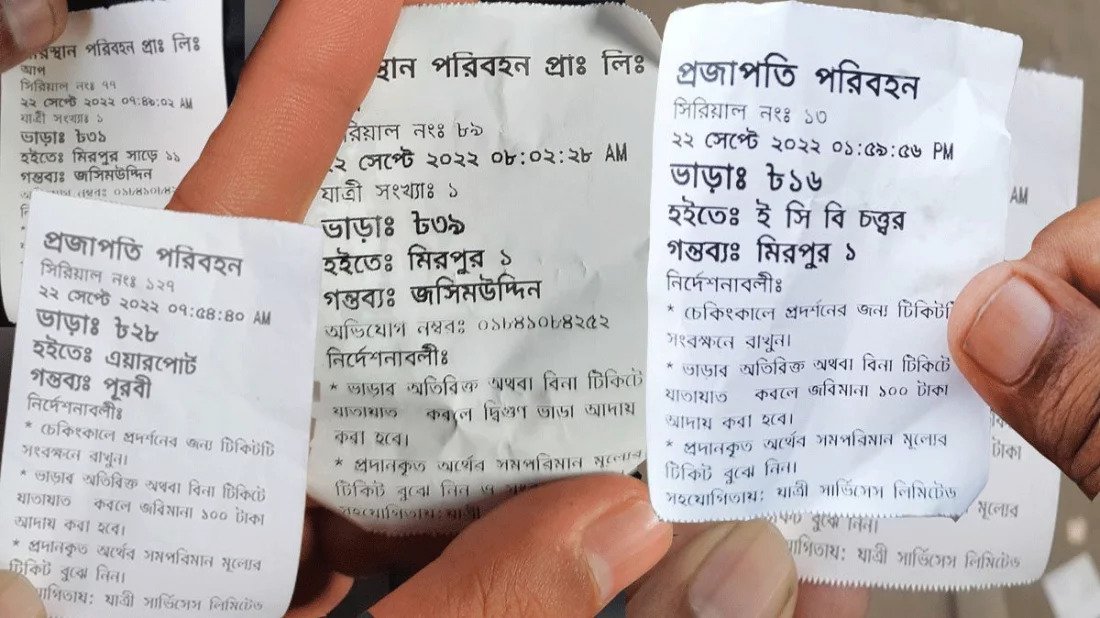 পরিবহন প্রাঃ লিঃ
আপ
সিরিয়াল নংঃ ৭৭
২২ সেপ্টে ২০২২ ০৭:৪৯:০২ AM
যাত্রী সংখ্যাঃ ১
ভাড়াঃ ৳৩৯
হইতেঃ মিরপুর সাড়ে ১১
গন্তব্যঃ জসিমউদ্দিন
প্রজাপতি পরিবহন
সিরিয়াল নংঃ ১২৭
২২ সেপ্টে ২০২২ ০৭:৫৪:৪০ AM
ভাড়াঃ ৳২৮
হইতেঃ এয়ারপোর্ট
গন্তব্যঃ পূরবী
নির্দেশনাবলীঃ
* চেকিংকালে প্রদর্শনের জন্য টিকিটটি
সংরক্ষনে রাখুন।
* ভাড়ার অতিরিক্ত অথবা বিনা টিকিটে
যাতায়াত করলে জরিমানা ১০০ টাকা
আদায় করা হবে।
* প্রদানকৃত অর্থের সমপরিমান মূল্যের
টিকিট বুঝে নিন।
যাত্রী সার্ভিসেস লিমিটেড
পরিবহন প্রাঃ লিঃ
নংঃ ৮৯
সেপ্টে ২০২২ ০৮:০২:২৮ AM
যাত্রী সংখ্যাঃ ১
ভাড়াঃ ৳৩৯
হইতেঃ মিরপুর ১
গন্তব্যঃ জসিমউদ্দিন
অভিযোগ নম্বরঃ ০১৮৪১০৮৪২৫২
নির্দেশনাবলীঃ
* ভাড়ার অতিরিক্ত অথবা বিনা টিকিটে
যাতায়াত করলে দ্বিগুণ ভাড়া আদায়
করা হবে।
* প্রদানকৃত অর্থের সমপরিমান মূল্যের
টিকিট বুঝে নিন
প্রজাপতি পরিবহন
সিরিয়াল নংঃ ১৩
২২ সেপ্টে ২০২২ ০১:৫৯:৫৬ PM
ভাড়াঃ ৳১৬
হইতেঃ ই সি বি চত্ত্বর
গন্তব্যঃ মিরপুর ১
নির্দেশনাবলীঃ
* চেকিংকালে প্রদর্শনের জন্য টিকিটটি
সংরক্ষনে রাখুন।
* ভাড়ার অতিরিক্ত অথবা বিনা টিকিটে
যাতায়াত করলে জরিমানা ১০০ টাকা
আদায় করা হবে।
* প্রদানকৃত অর্থের সমপরিমান মূল্যের
টিকিট বুঝে নিন।
সহযোগিতায়: যাত্রী সার্ভিসেস লিমিটেড
AM
টাকা
মূল্যের
বুঝে নিন।
যাত্রী সার্ভিসেস লিমিটেড